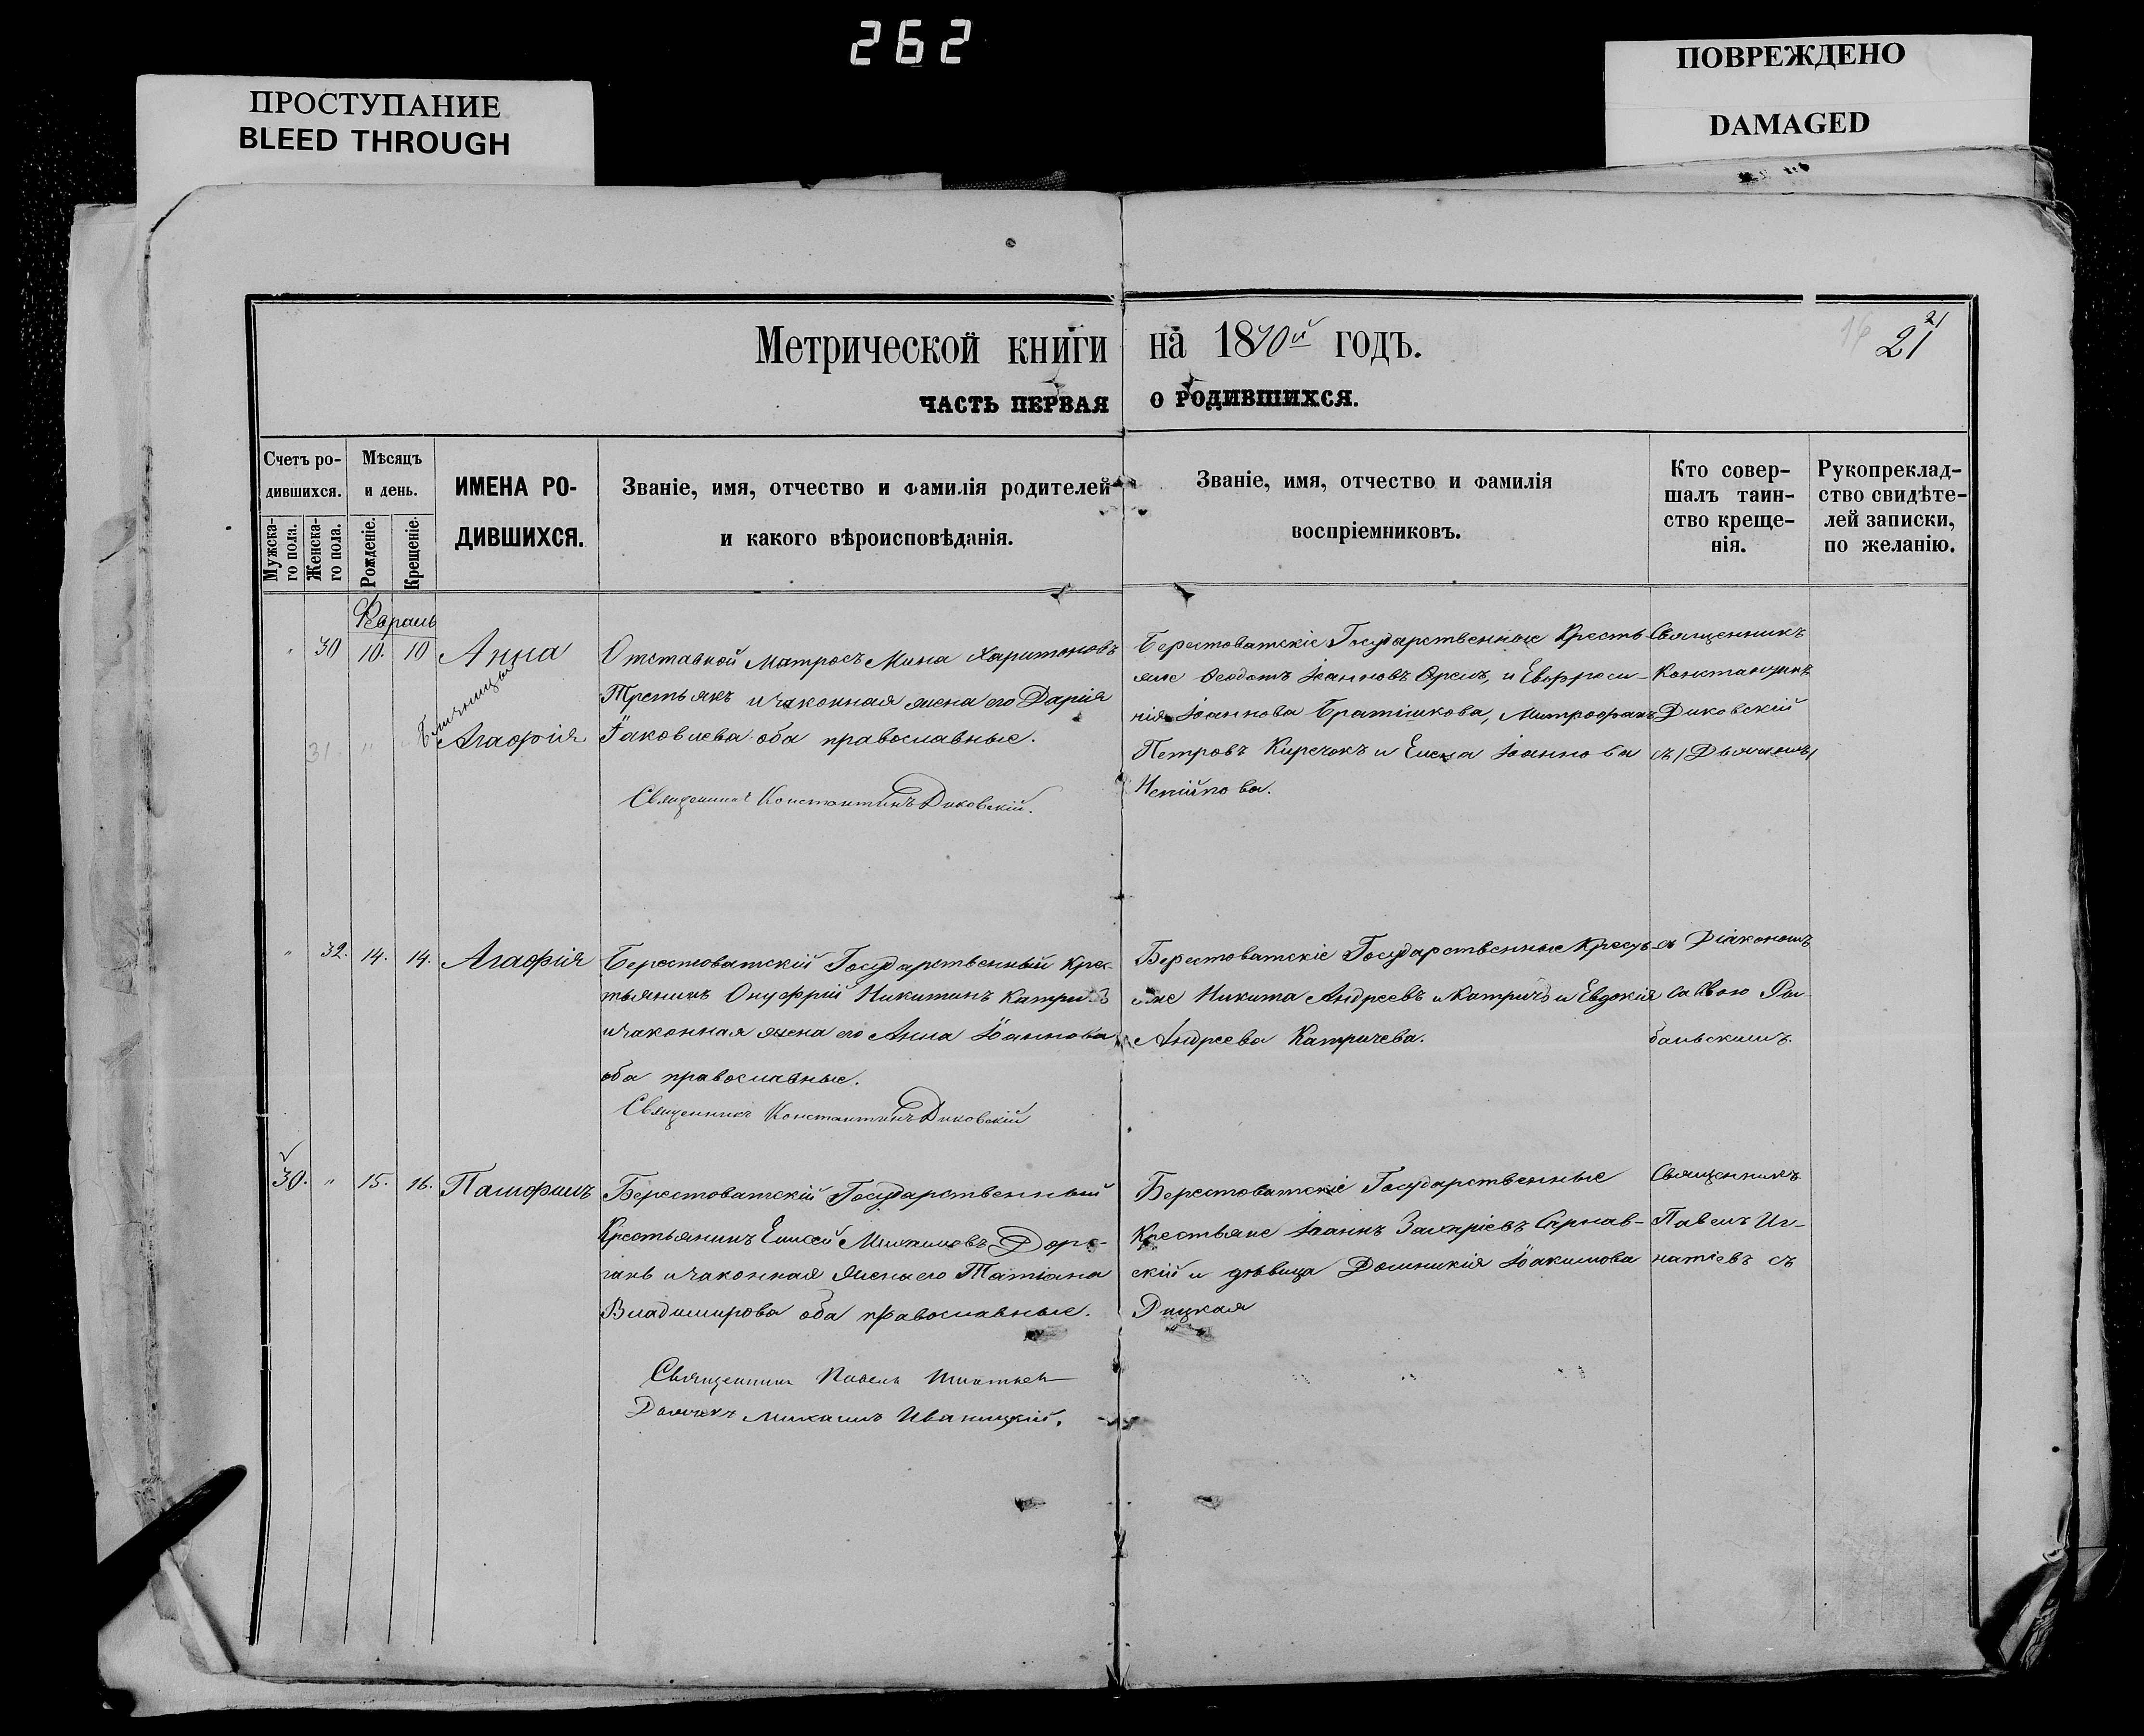 262
ПРОСТУПАНИЕ
BLEED THROUGH
ПОВРЕЖДЕНО
DAMAGED
Метрической книги на 1870й годъ.
21
21
ЧАСТЬ ПЕРВАЯ О РОДИВШИХСЯ.
Счетъ ро-
дившихся.
Мужска-
го пола.
Женска-
го пола.
Мѣсяцъ
и день.
Рожденіе.
Крещеніе.
ИМЕНА РО-
ДИВШИХСЯ.
Званіе, имя, отчество и фамилія родителей
и какого вѣроисповѣданія.
Званіе, имя, отчество и фамилія
воспріемниковъ.
Кто совер-
шалъ таин-
ство креще-
нія.
Рукоприклад-
ство свидѣте-
лей записки,
по желанію.
" 30 10. 10 Анна
31 " Близницы Агафія
Отставной Матросъ Мина Харитоновъ
Третьякъ и законная жена его Дарія
Іаковлева оба православные.
Священникъ Константинъ Диковскій.
Берестоватскіе Государственные Кресть-
яне Ѳеодотъ Іоанновъ Орелъ, и Евфроси-
нія Іоаннова Братишкова, Митрофанъ
Петровъ Киречокъ и Елена Іоаннова
Священникъ
Константинъ
Диковскій
съ Дьячкомъ
" 32. 14. 14. Агафія
Берестоватскій Государственный Крес-
тьянинъ Онуфрій Никитинъ
и законная жена его Анна Іоаннова
оба православные.
Священникъ Константинъ Диковскій
Берестоватскіе Государственные Кресть-
яне Никита Андреевъ Катричъ и Евдокія
Андреева Катричева.
съ Діакономъ
Саввою Ры-
бальскимъ.
30. " 15. 16. Памфилъ
Берестоватскій Государственный
Крестьянинъ Елисей
и законная жена его Татіана
Владимирова оба православные.
Священникъ Павелъ Игнатьев
Дьячекъ Михаилъ Иваницкій.
Берестоватскіе Государственные
Крестьяне Іоаннъ Захаріевъ Сарнав-
скій и дѣвица Домникія Іоакимова
Дицкая
Священникъ
Павелъ Иг-
натіевъ съ